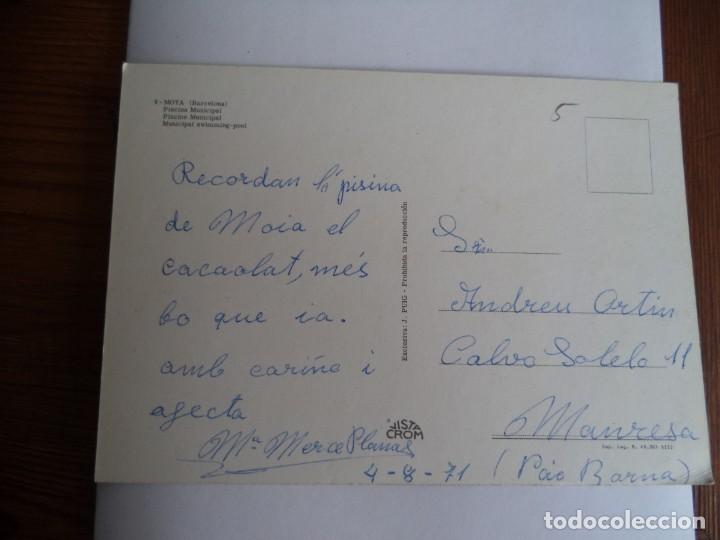 8 - MOYA (Barcelona)
Piscina Municipal
Piscine Municipal
Municipal swimming-pool
5
Recordan la pisina
de Moia el
cacaolat, més
bo que ia.
amb cariño i
afecta
Mª Merce Planas
4-8-71
Exclusiva: J. PUIG - Prohibida la reproducción
VISTA
CROM
Sr.
Andreu Ortin
Calvo Sotelo 11
Manresa
(Barna)
todocoleccion.net